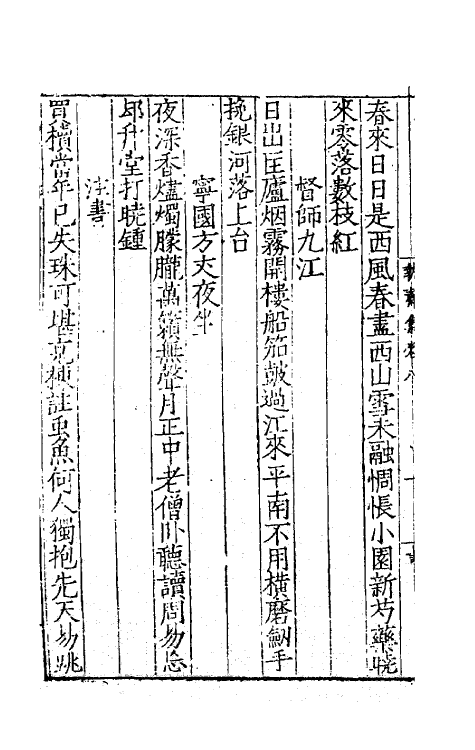 春來日日是西風春盡西山雪未融惆悵小園新芍藥曉
來零落數枝紅
督師九江
日出匡廬烟霧開樓船笳鼓過江來平南不用橫磨劒手
挽銀河落上台
寧國方丈夜坐
夜深香燼燭朦朧萬籟無聲月正中老僧卧聽讀周易忘
却升堂打曉鍾
注書
買櫝當年已失珠可堪亥梗註虫魚何人獨抱先天易跳